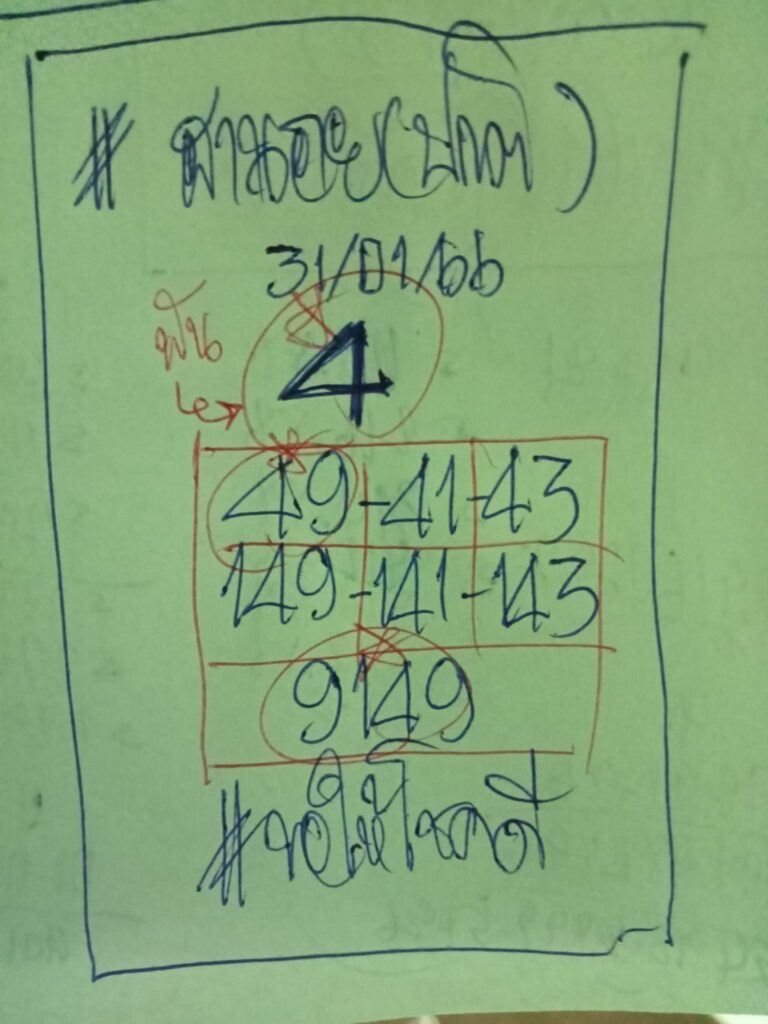 # ฮานอย(ปกติ)
31/01/66
ฟัน
4
49-41-43
149-141-143
9149
#ขอให้โชคดี